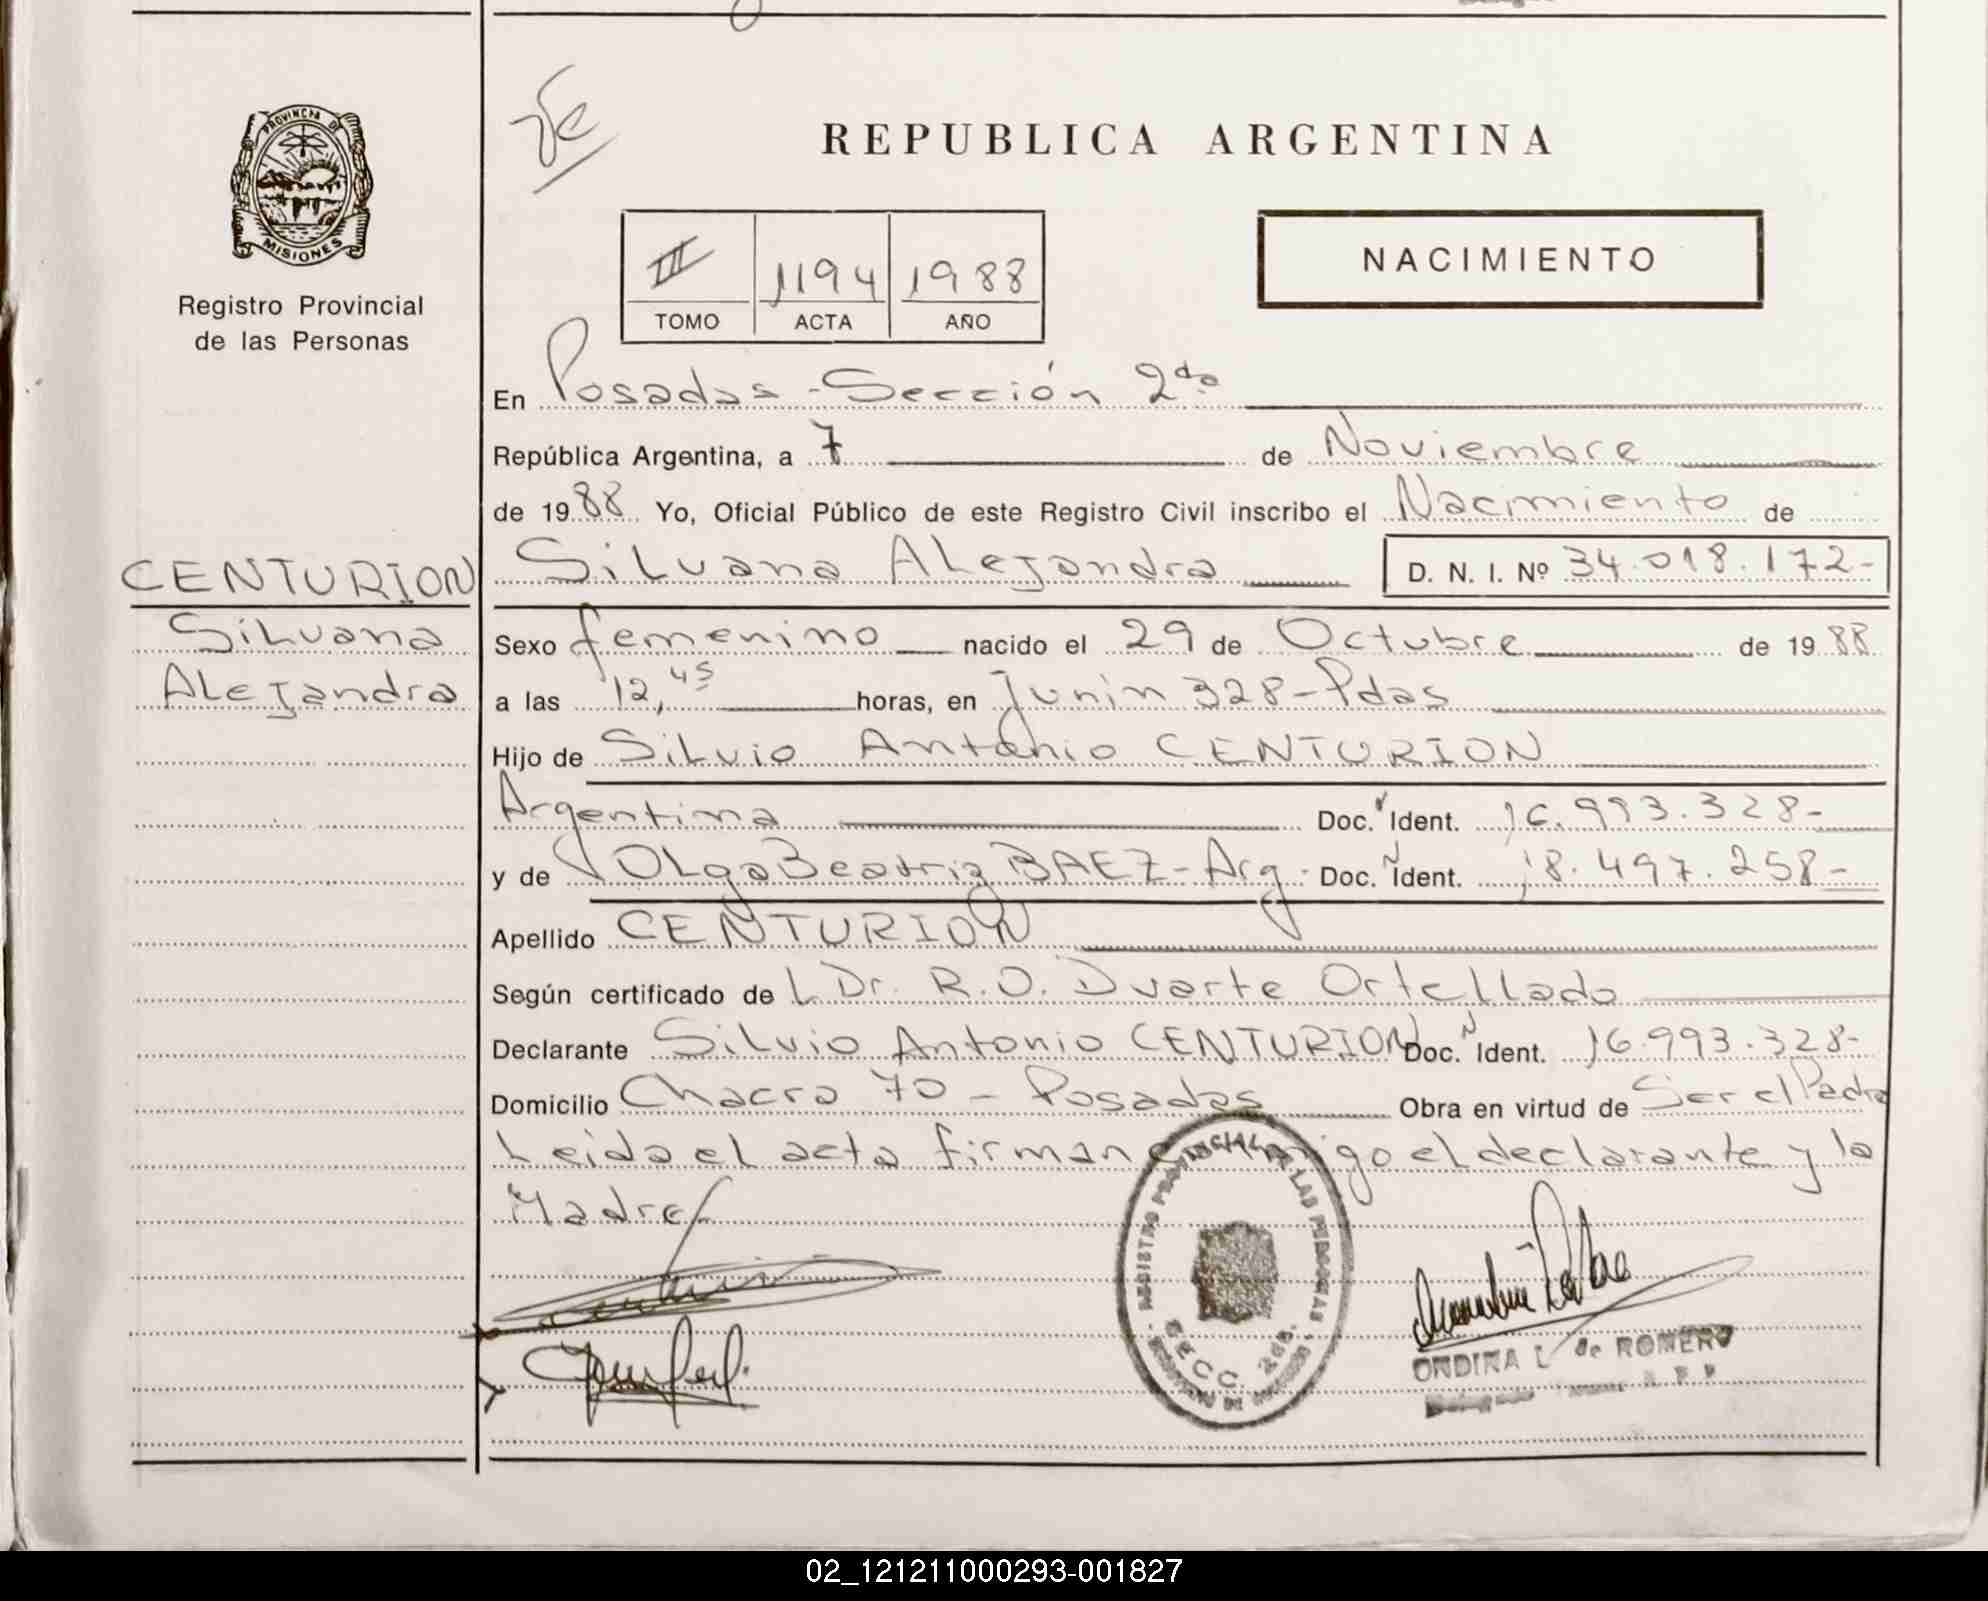 PROVINCIA DE
MISIONES
Registro Provincial
de las Personas
REPUBLICA ARGENTINA
III 1194 1988
TOMO ACTA AÑO
NACIMIENTO
En Posadas - Sección 2da
República Argentina, a 7 de Noviembre
de 1988 Yo, Oficial Público de este Registro Civil inscribo el Nacimiento de
CENTURION
Silvana Alejandra D. N. I. Nº 34.018.172-
Silvana
Sexo femenino nacido el 29 de Octubre de 1988
Alejandra
a las 12,45 horas, en Junin 328-Pdas
Hijo de Silvio Antonio CENTURION
Argentina Doc. Ident. 16.993.328-
y de Olga Beatriz BAEZ-Arg. Doc. Ident. 18.497.258-
Apellido CENTURION
Según certificado de L Dr. R.O. Duarte Ortellado
Declarante Silvio Antonio CENTURION Doc. Ident. 16.993.328-
Domicilio Chacra 70 - Posadas Obra en virtud de Ser el Padre
Leida el acta firman conmigo el declarante y la
Madre
REGISTRO PROVINCIAL DE LAS PERSONAS
SECC. 2da.
ONDINA L. de ROMERO
02_121211000293-001827